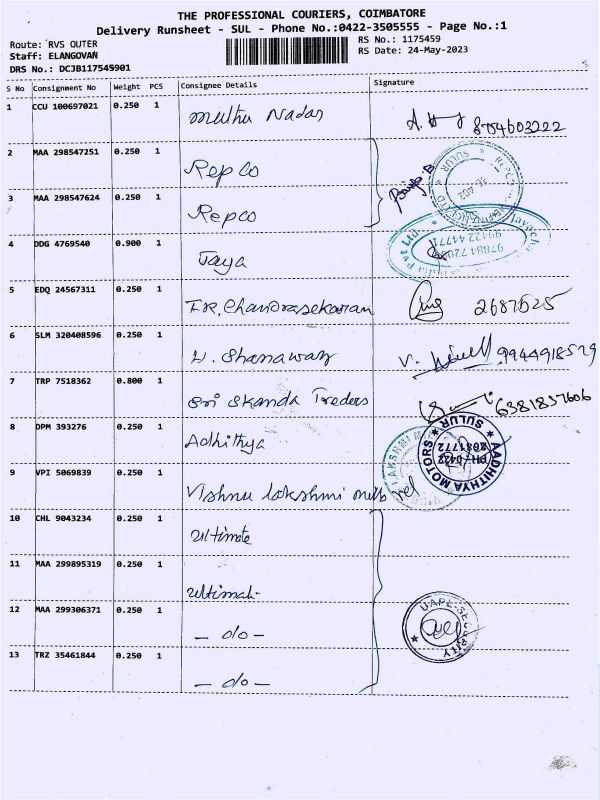 THE PROFESSIONAL COURIERS, COIMBATORE
Delivery Runsheet - SUL - Phone No.:0422-3505555 - Page No.:1
Route: RVS OUTER RS No.: 1175459
Staff: ELANGOVAN RS Date: 24-May-2023
DRS No.: DCJB117545901
S No Consignment No Weight PCS Consignee Details Signature
1 CCU 100697021 0.250 1 Muthu Nadar 8754603222
2 MAA 298547251 0.250 1 Repco
3 MAA 298547624 0.250 1 Repco
4 DDG 4769540 0.900 1 Jaya
5 EDQ 24567311 0.250 1 Chandrasekaran 2687525
6 SLM 320408596 0.250 1 Shanawaz 9944918579
7 TRP 7518362 0.800 1 Sri Skanda Traders 6381857606
8 DPM 393276 0.250 1 Adhithya
AADHITHYA MOTORS SULUR PH-0422 2681772
9 VPI 5069839 0.250 1 Vishnu lakshmi mills
10 CHL 9043234 0.250 1 Ultimate
11 MAA 299895319 0.250 1 Ultimate
12 MAA 299306371 0.250 1 - do -
UAPL-SECURITY
13 TRZ 35461844 0.250 1 - do -